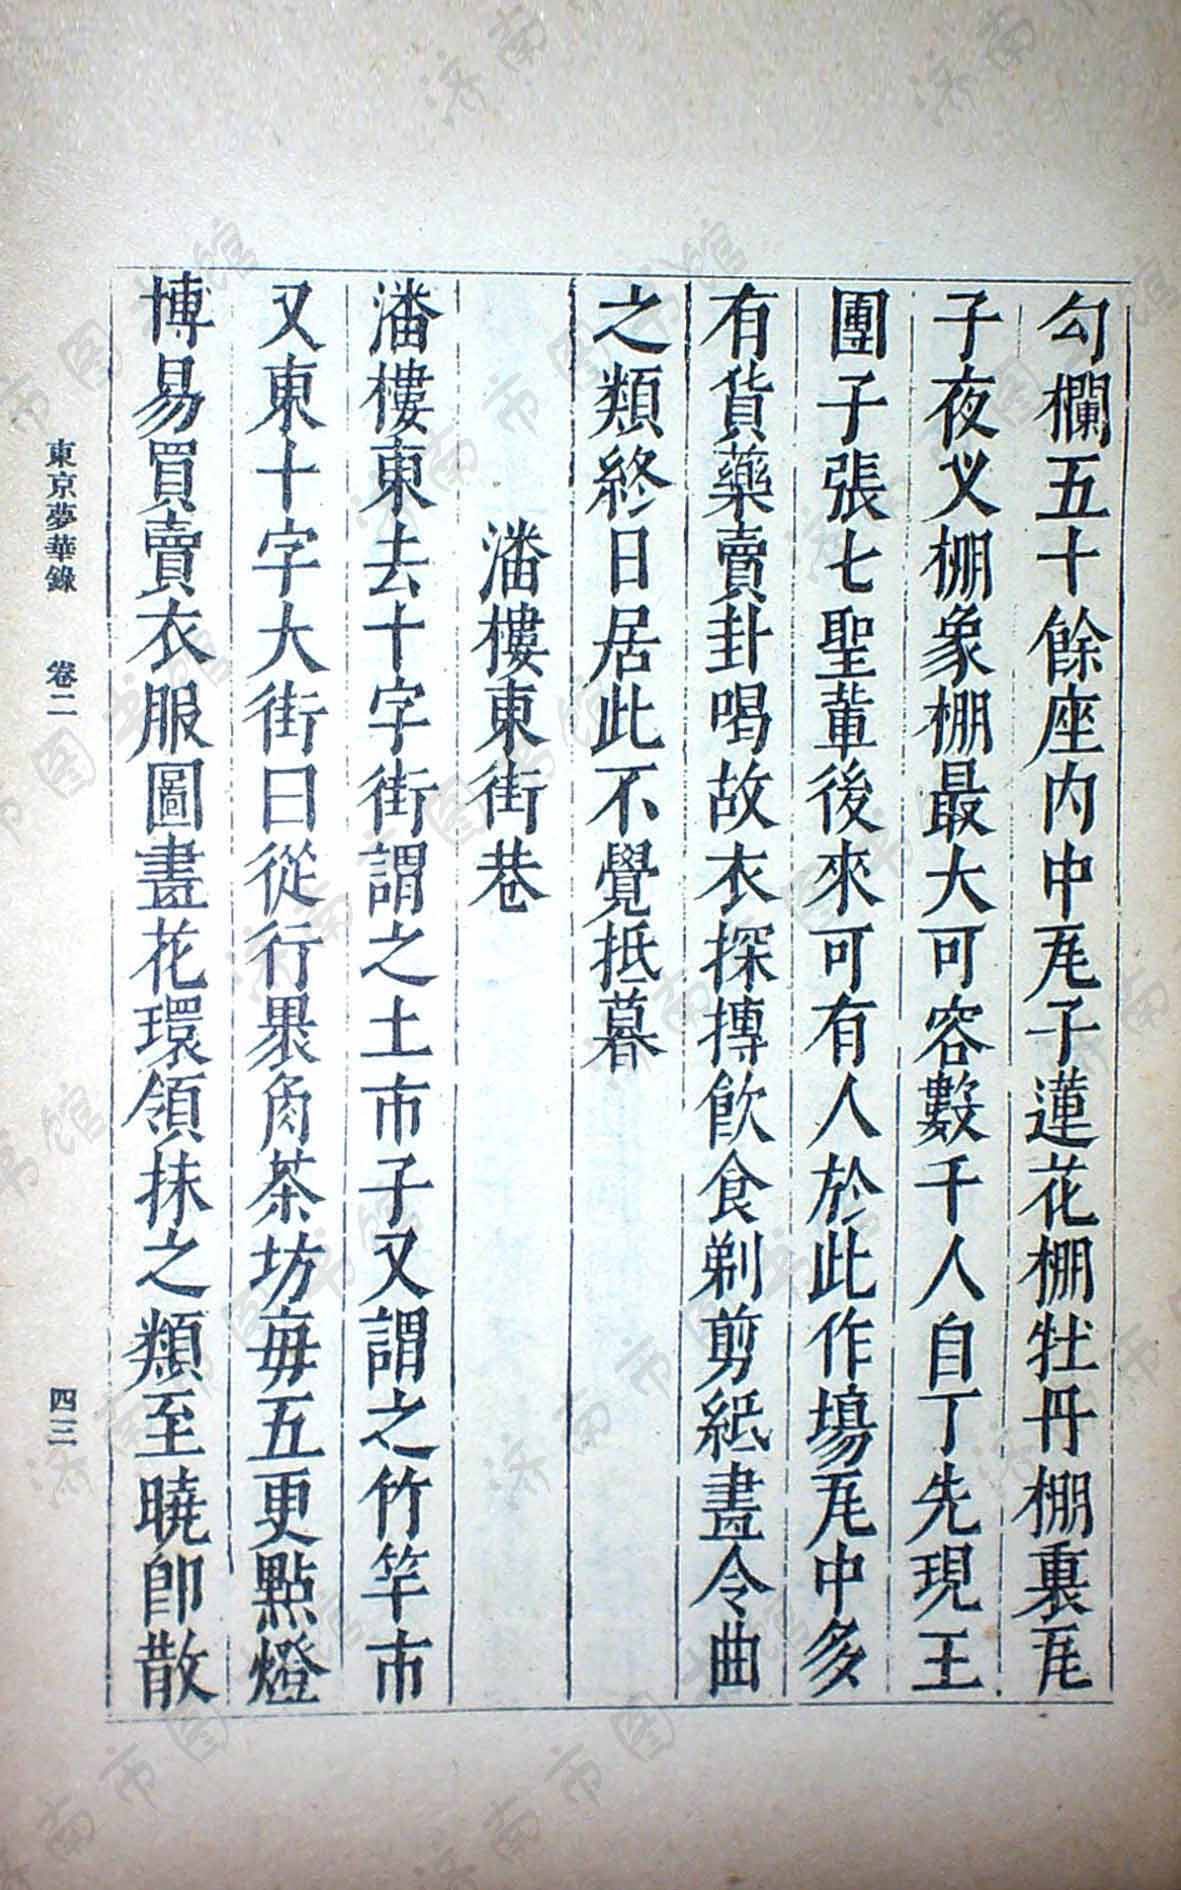 勾欄五十餘座內中瓦子蓮花棚牡丹棚裏瓦
子夜叉棚象棚最大可容數千人自丁先現王
團子張七聖輩後來可有人於此作場瓦中多
有貨藥賣卦喝故衣探搏飲食剃剪紙畫令曲
之類終日居此不覺抵暮
潘樓東街巷
潘樓東去十字街謂之土市子又謂之竹竿市
又東十字大街曰從行褁角茶坊每五更點燈
博易買賣衣服圖畫花環領抹之類至曉即散
東京夢華錄 卷二 四三
济南市图书馆